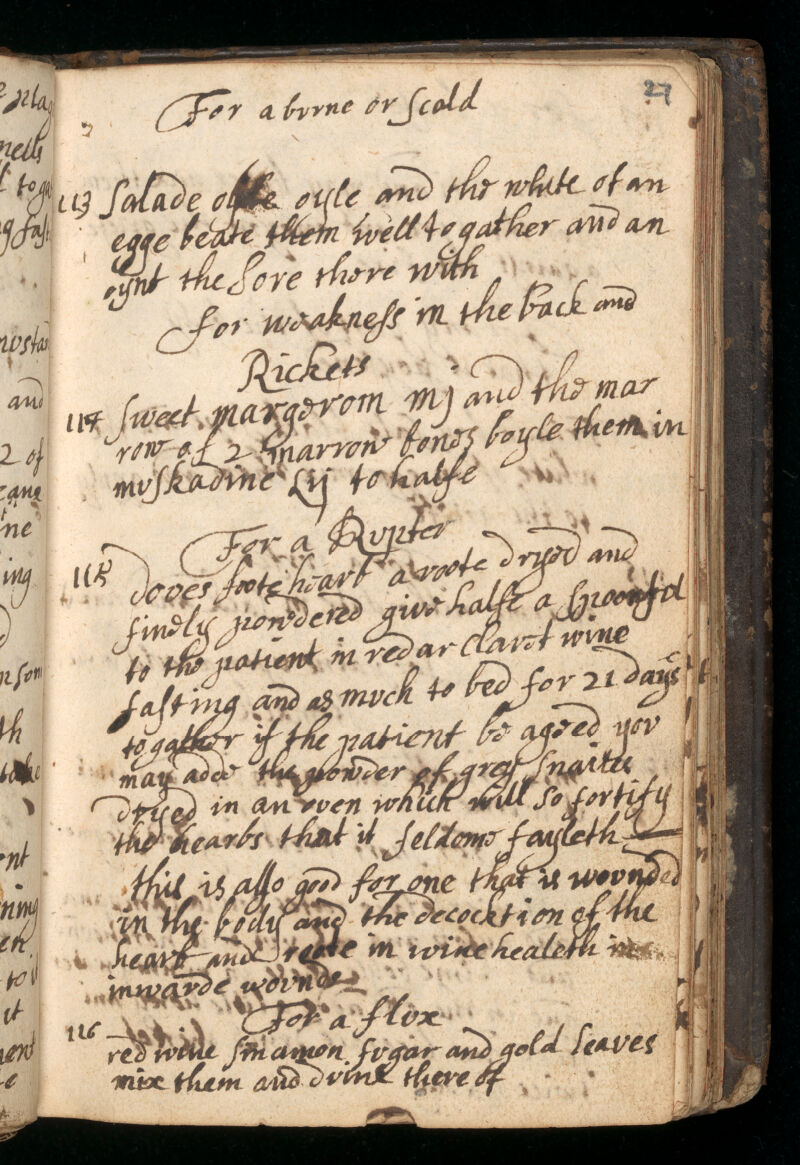 27
For a burne or Scald
113 Salade oyle and the white of an
egge beate them well to gather and an
oynt the Sore there with
for weakness in the back and
Rickets
114 Sweet margerom mj and the mar
row of 2 marrow bones boyle them in
muskadine to halfe
For a Rupter
115 doves foote hearb a roote dryed and
finely powdered give halfe a Spoonful
to the patient in red ar Claret wine
fasting and as much to bed for 21 days
to gather if the patient be ageed you
may adde the powder of grey Snailes
dryed in an oven which will so fortify
the hearbs that it seldome fayleth
this is also good for one that is wounded
in the body and the decocktion of the
hearb and roote in wine healeth
inwarde wounds
For a flux
116 red wine sinamon sugar and gold leaves
mix them and drink there of